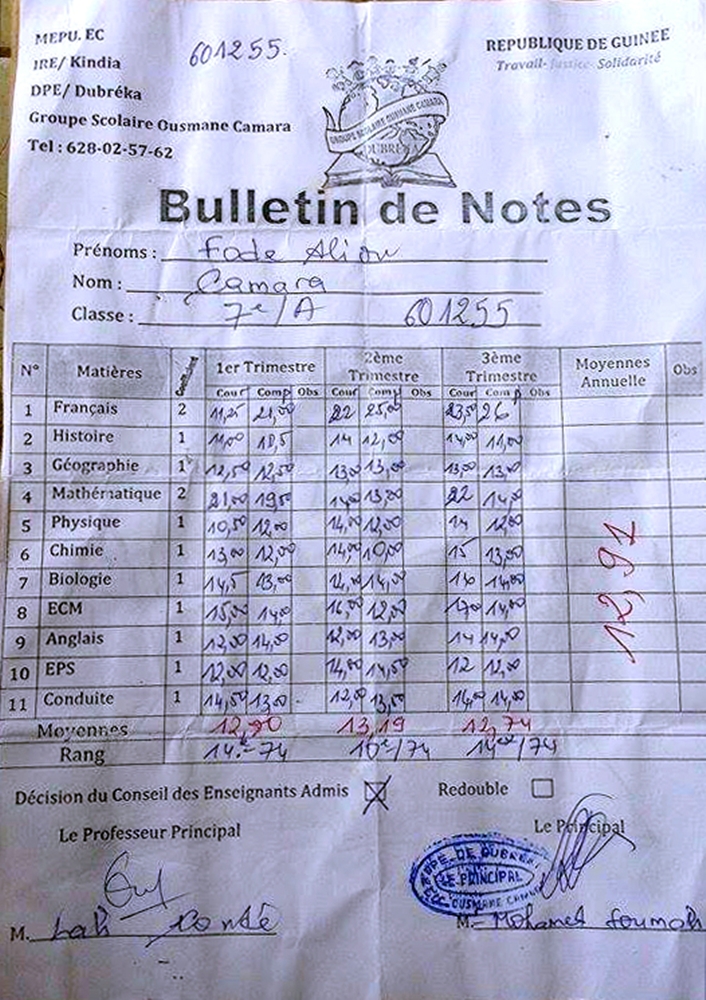 MEPU. EC
IRE/ Kindia
DPE/ Dubréka
Groupe Scolaire Ousmane Camara
Tel : 628-02-57-62
601255.
REPUBLIQUE DE GUINEE
Travail- Justice- Solidarité
GROUPE SCOLAIRE OUSMANE CAMARA
DUBREKA
Bulletin de Notes
Prénoms : Fode Aliou
Nom : Camara
Classe : 7e/A 601255
N° Matières 1er Trimestre 2ème Trimestre 3ème Trimestre Moyennes Annuelle Obs
Cour Comp Obs Cour Comp Obs Cour Comp Obs
1 Français 2 11,25 21,00 22 25,00 23,50 26
2 Histoire 1 11,00 10,5 14 12,00 14,00 11,00
3 Géographie 1 12,50 12,50 13,00 13,00 13,00 13,00
4 Mathématique 2 21,00 19,50 14,00 13,00 22 14,00
5 Physique 1 10,50 12,00 14,00 12,00 14 12,00
6 Chimie 1 13,00 12,00 14,00 10,00 15 13,00
7 Biologie 1 14,5 13,00 14,00 14,00
8 ECM 1 15,00 14,00 16,00 12,00 17,00 14,00
9 Anglais 1 12,00 14,00 12,00 13,00 14 14,00
10 EPS 1 12,00 12,00 14,00 14,50 12 12,00
11 Conduite 1 14,50 13,00 12,00 13,50 14,00 14,00
12,91
Moyennes 12,90 13,19 12,74
Rang 14e-74 10e/74 14e/74
Décision du Conseil des Enseignants Admis Redouble
Le Professeur Principal Le Principal
DPE DE DUBREKA
LE PRINCIPAL
OUSMANE CAMARA
M. Condé M. Mohamet Soumah